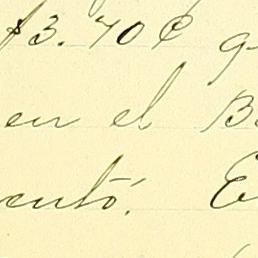 $3.70¢ q
en el B
entó. E